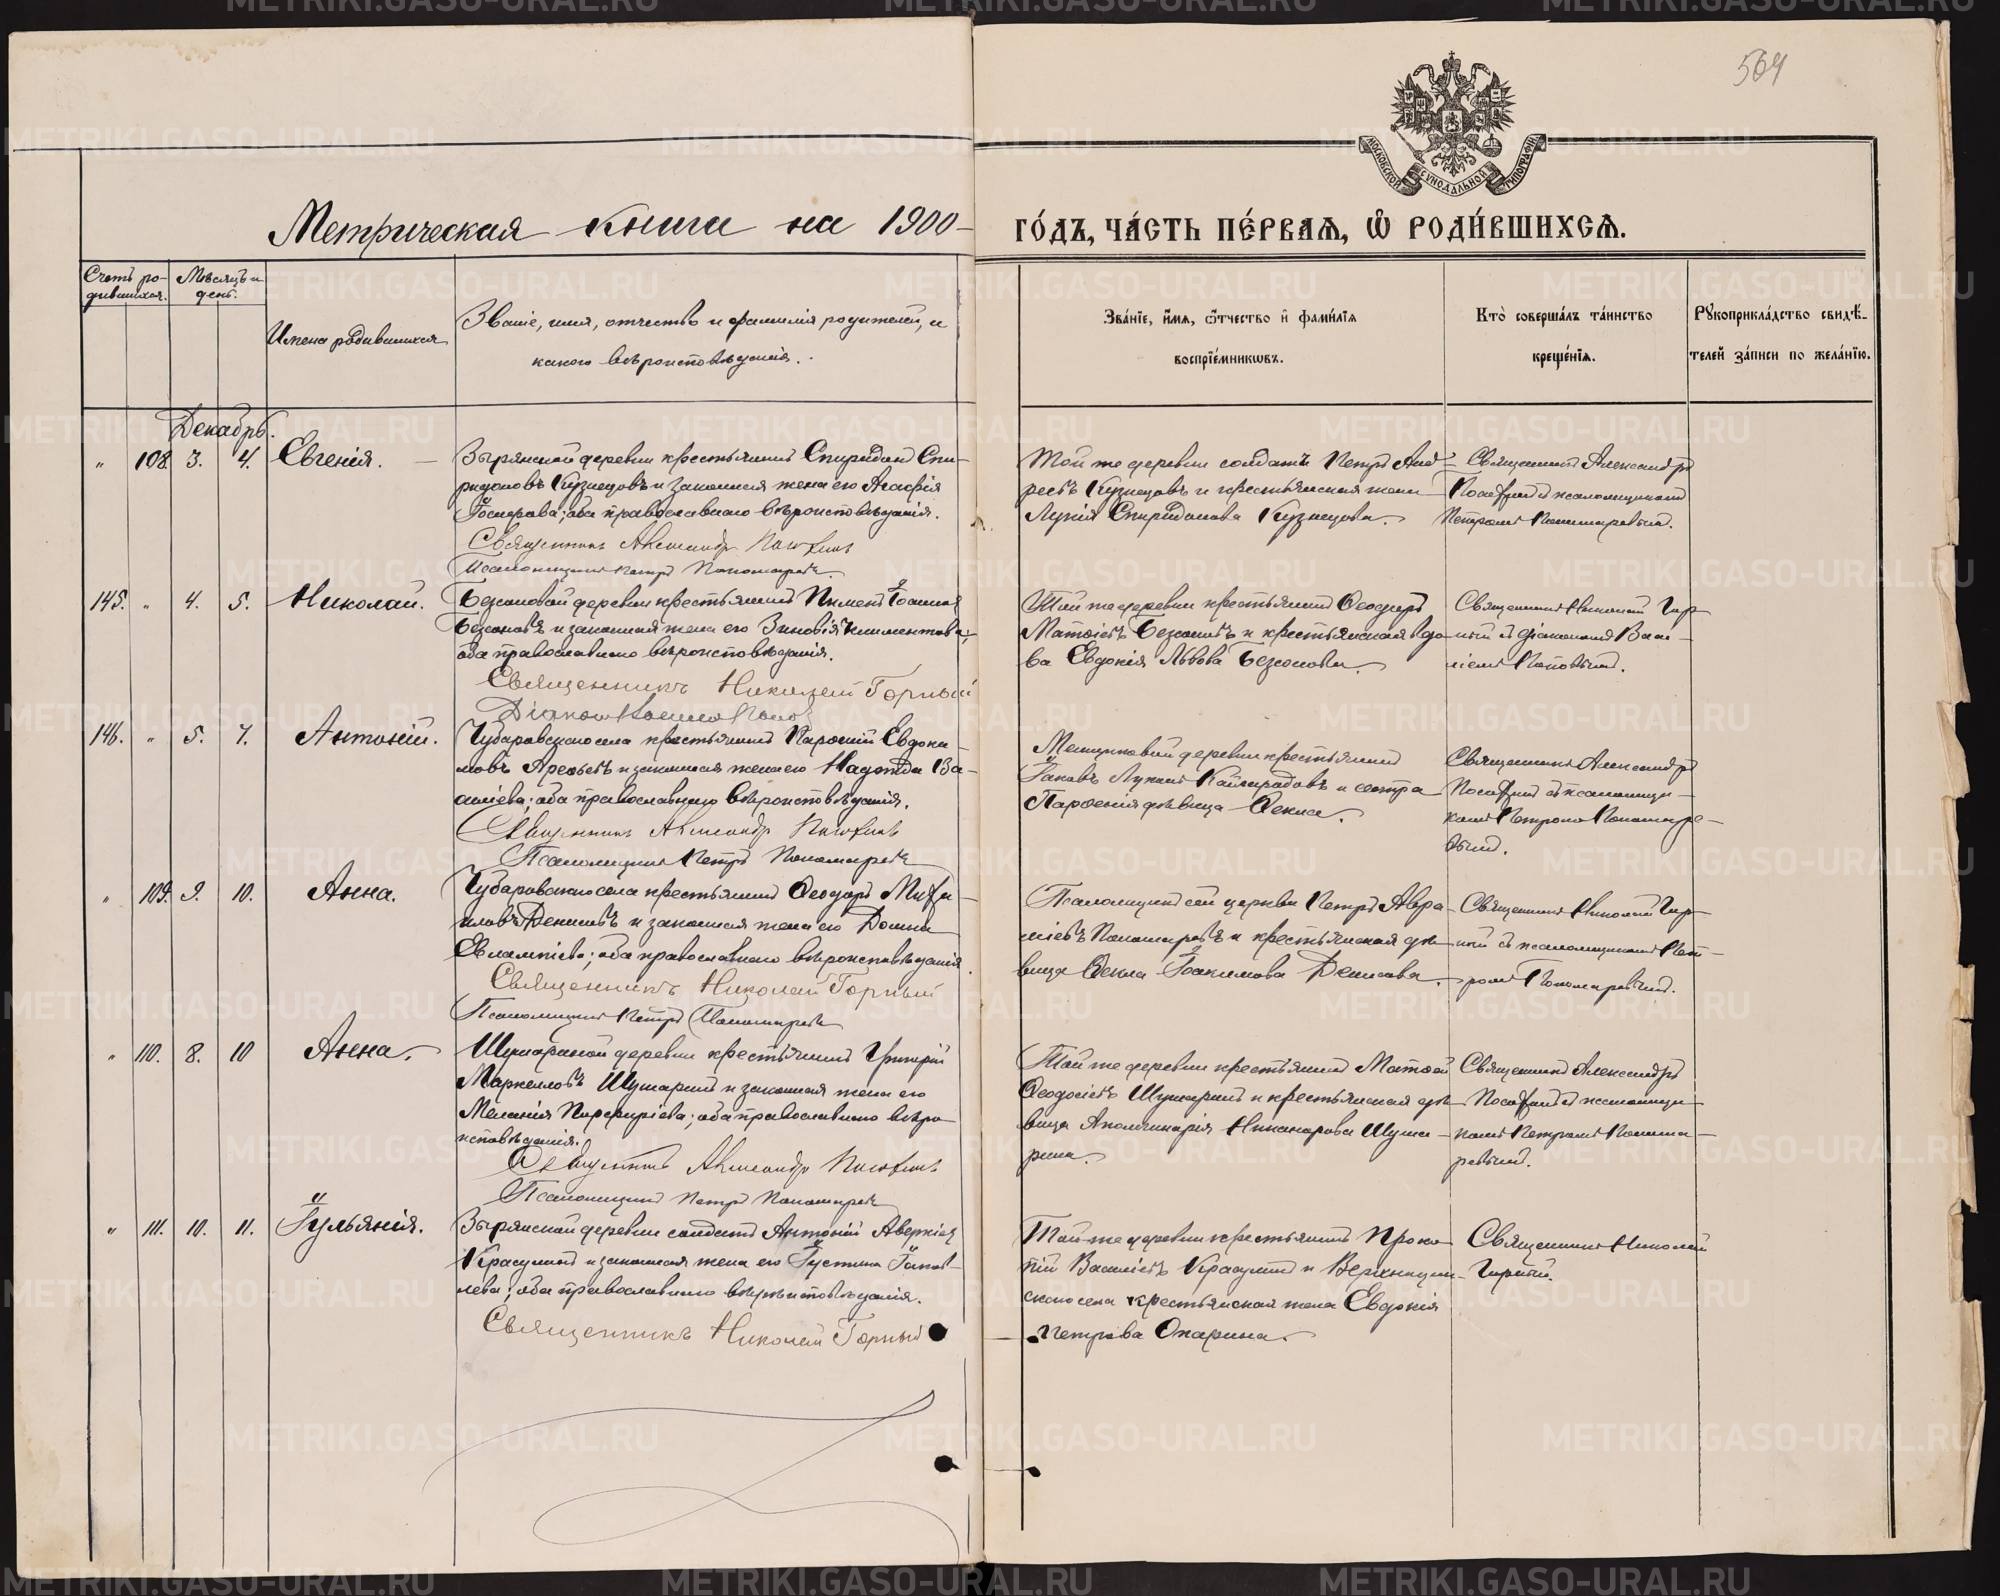 564
МОСКОВСКОЙ СѴНОДАЛЬНОЙ ТИПОГРАФІИ
Метрическая книга на 1900
ГО́ДЪ, ЧА́СТЬ ПЕ́РВАѦ, Ѽ РОДИ́ВШИХСѦ.
Счетъ ро-
дившихся.
Мѣсяцъ и
день.
Имена родившихся
Званіе, имя, отчество и фамилія родителей, и
какого вѣроисповѣданія.
Зва́нїе, и҆́мѧ, ѻ҆́тчество и҆ фами́лїѧ
воспрїе́мникѡвъ.
Кто̀ соверша́лъ та́инство
креще́нїѧ.
Рꙋкоприкла́дство свидѣ́-
телей за́писи по жела́нїю.
Декабрь.
" 108. 3. 4. Евгенія.
Зырянской деревни крестьянинъ Спиридонъ Спи-
ридоновъ Кузнецовъ и законная жена его
оба православнаго вѣроисповѣданія.
Священникъ Александр
Псаломщикъ Петръ Пономаревъ
Той же деревни солдатъ Петръ Анд-
реевъ Кузнецовъ и крестьянская жена
Лукія Спиридонова Кузнецова.
Священникъ Александръ
съ псаломщикомъ
Петромъ Пономаревымъ.
145. " 4. 5. Николай.
Безсоновой деревни крестьянинъ Пименъ Іоанновъ
Безсоновъ и законная жена его Зиновія Климентова;
оба православнаго вѣроисповѣданія.
Священникъ Николай Горный
Діаконъ Василій Поповъ
Той же деревни крестьянинъ Ѳеодоръ
Матѳіевъ Безсоновъ и крестьянская вдо-
ва Евдокія Львова Безсонова.
Священникъ Николай Гор-
ный съ діакономъ Васи-
ліемъ Поповымъ.
146. " 5. 7. Антоній.
Чубаровскаго села крестьянинъ Парѳеній Евдоки-
мовъ Арефьевъ и законная жена его Надежда Ва-
силіева; оба православнаго вѣроисповѣданія.
Священникъ Александр
Псаломщикъ Петръ Пономаревъ
деревни крестьянинъ
Іаковъ Лукинъ Кайгородовъ и сестра
Парѳенія дѣвица Ѳекла.
Священникъ Александръ
съ псаломщи-
комъ Петромъ Пономаре-
вымъ.
" 109. 9. 10. Анна.
Чубаровскаго села крестьянинъ Ѳеодоръ Михаи-
ловъ Денисовъ и законная жена его Домна
Евлампіева; оба православнаго вѣроисповѣданія.
Священникъ Николай Горный
Псаломщикъ Петръ Пономаревъ
Псаломщикъ сей церкви Петръ Авра-
міевъ Пономаревъ и крестьянская дѣ-
вица Ѳекла Іоакимова Денисова.
Священникъ Николай Гор-
ный съ псаломщикомъ Пет-
ромъ Пономаревымъ.
" 110. 8. 10 Анна.
Шумариной деревни крестьянинъ Григорій
Маркелловъ Шумаринъ и законная жена его
Меланія Порфиріева; оба православнаго вѣро-
исповѣданія.
Священникъ Александр
Псаломщикъ Петръ Пономаревъ
Той же деревни крестьянинъ Матѳей
Ѳеодосіевъ Шумаринъ и крестьянская дѣ-
вица Аполлинарія Никанорова Шума-
рина.
Священникъ Александръ
съ псаломщи-
комъ Петромъ Понома-
ревымъ.
" 111. 10. 11. Іульянія.
Зырянской деревни солдатъ Антоній Аверкіевъ
Красулинъ и законная жена его Іустина Іаков-
лева; оба православнаго вѣроисповѣданія.
Священникъ Николай Горный
Той же деревни крестьянинъ Проко-
пій Василіевъ Красулинъ и
скаго села крестьянская жена Евдокія
Петрова Опарина.
Священникъ Николай
Горный.
METRIKI.GASO-URAL.RU